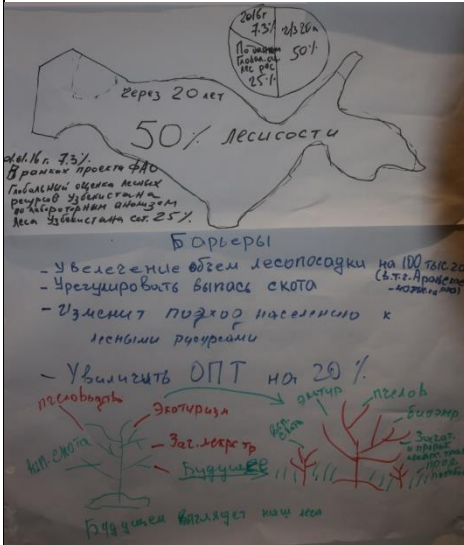 2016г
7.3%
ч/з 20л
50%
По оценки
Глобал.
лес рес
25%
Через 20 лет
50% лесистости
01.01.16г. 7.3%.
В рамках проекта ФАО
Глобальний оценка лесных
ресурсов Узбекистана
по лабораторним анализам
леса Узбекистана сот. 25%
Барьеры
- Увелечение объем лесопосадки на 100 тыс га
(в.т.г. Аральское
- Урегулировать выпась скота
- Изменит подход населению к
лесными русурсами
- Увеличить ОПТ на 20%
пчеловодств
Экотуризм
вып-скота
Заг. лекрс тр
Будущее
экотур
пчелов
биоэнер
вып.
скота
Загат.
лекарс. трав
Будущем выглядет наш леса